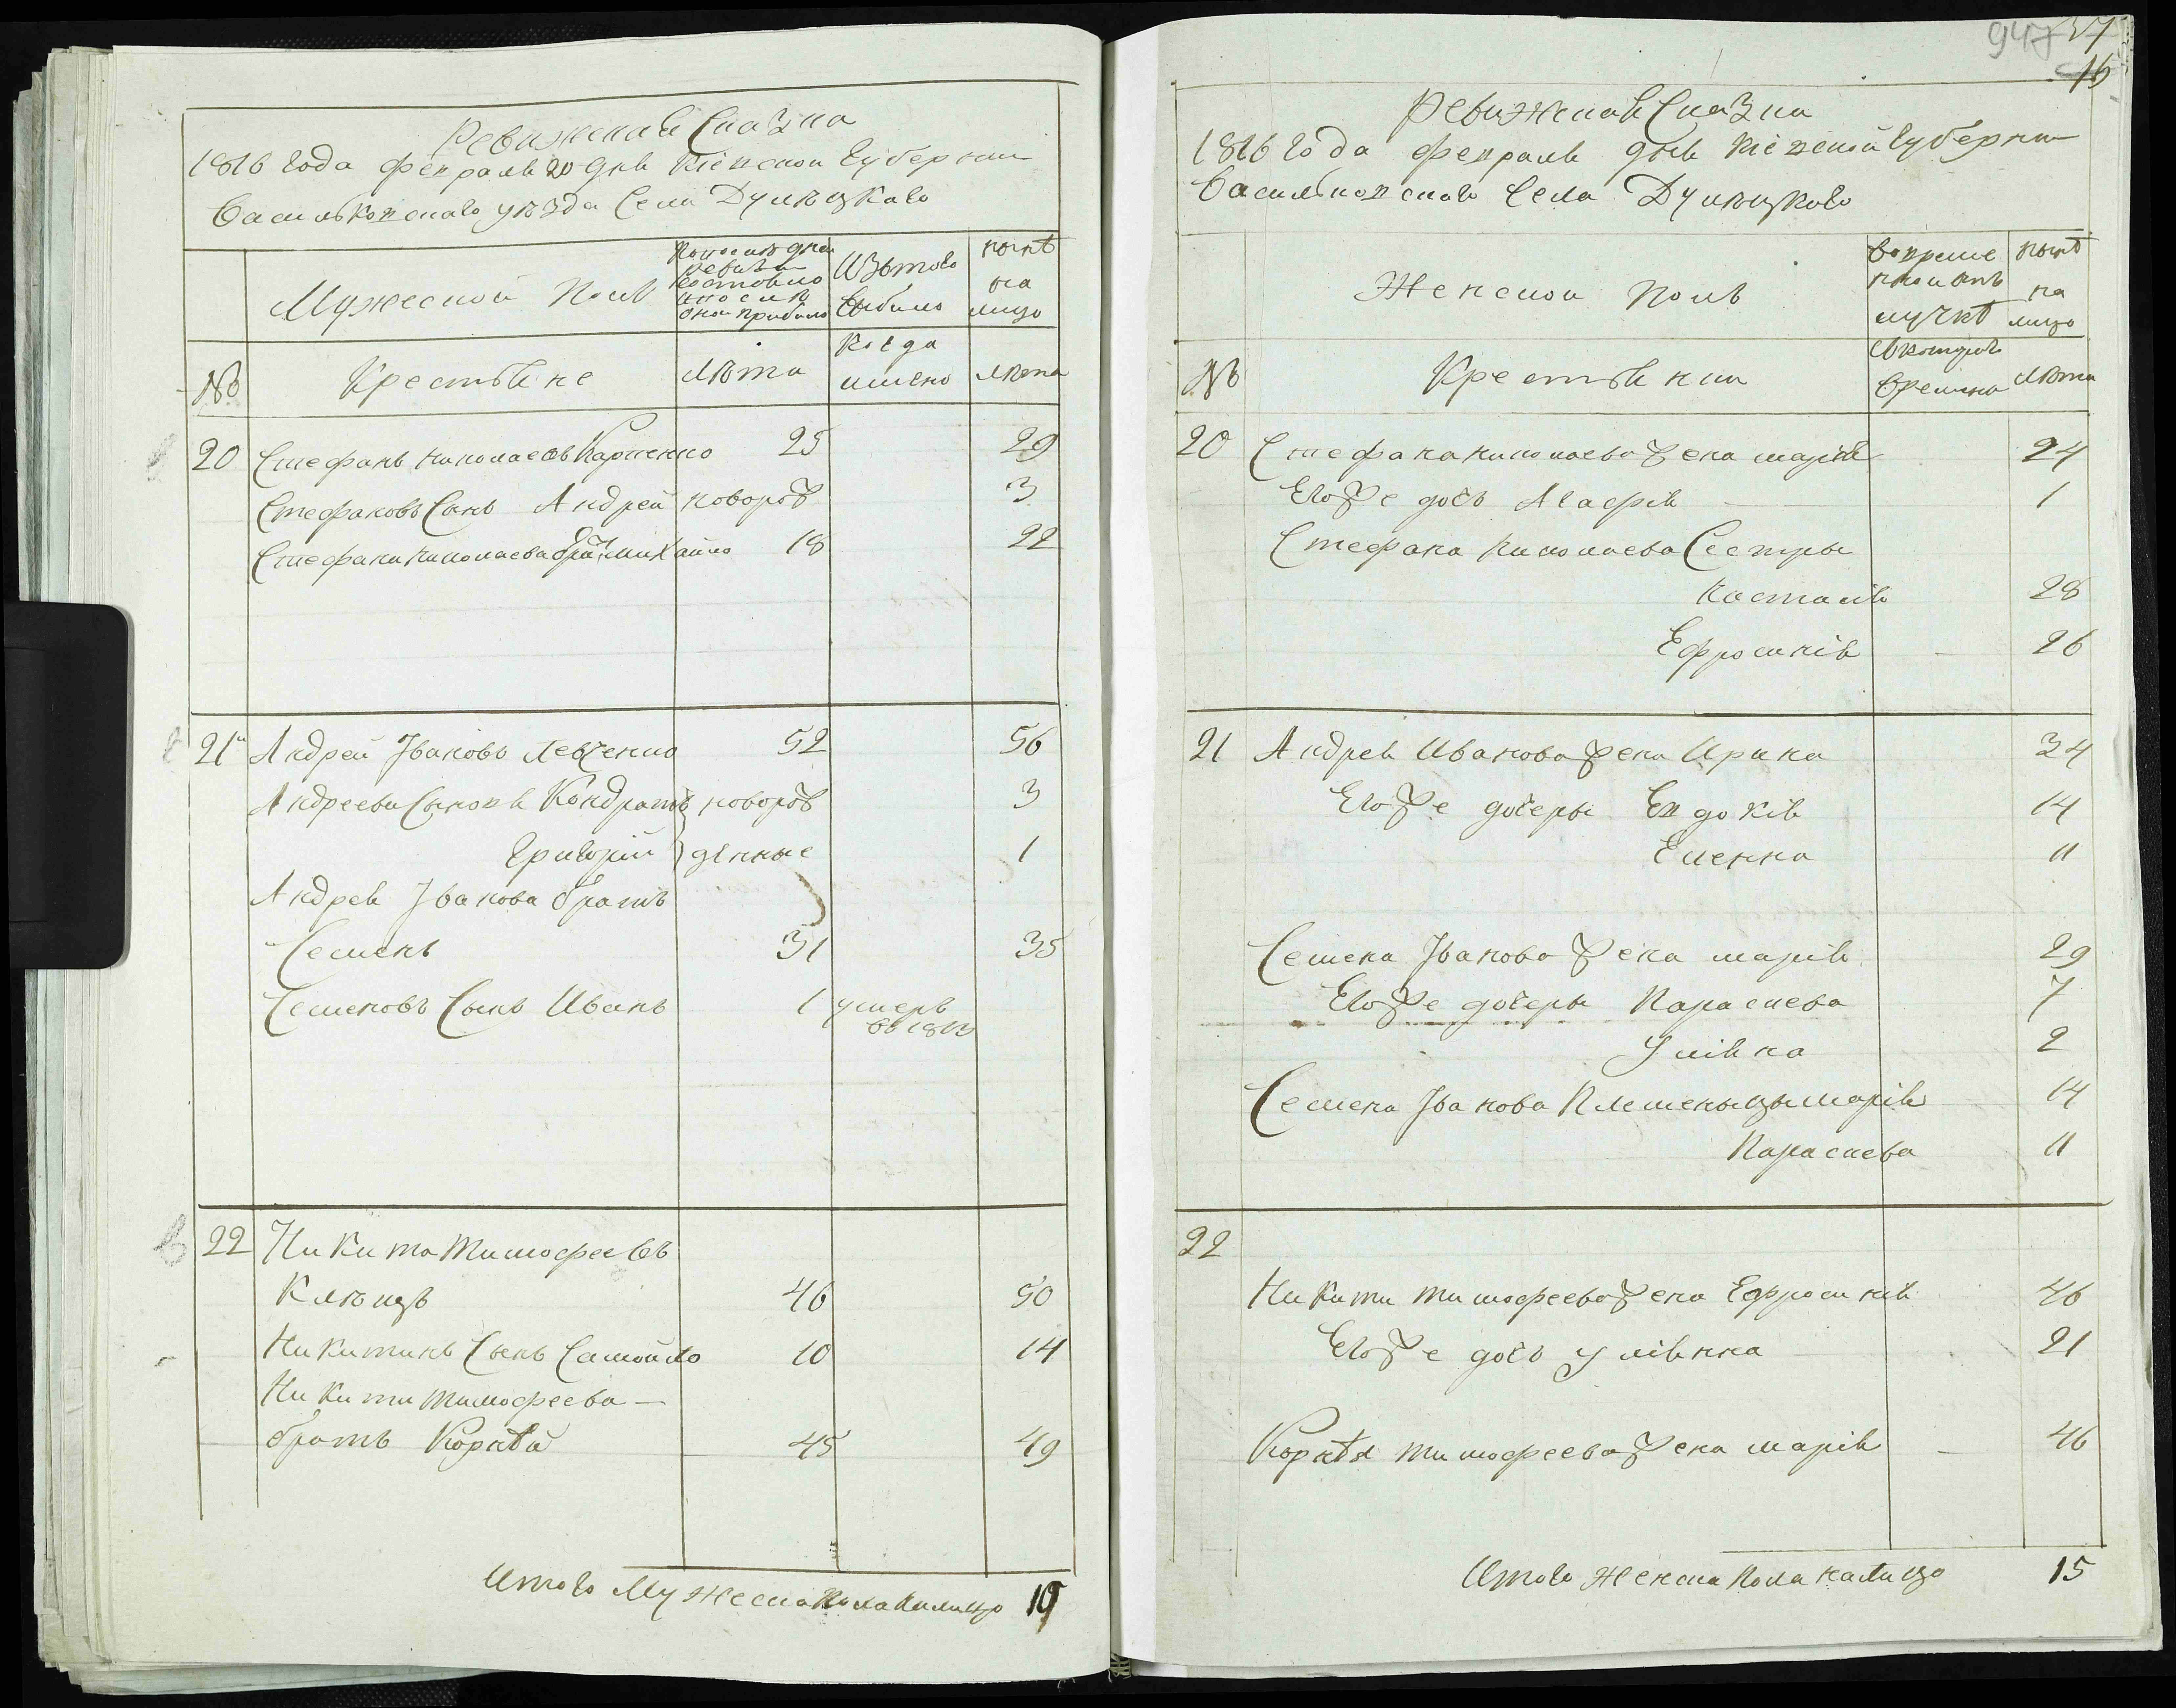 Ревижская Сказка
1816 года февраля 20 дня Кіевской Губернии
Васильковского уѣзда Села Дулѣцкаго
Мужеской полъ
По последней ревизіи состояло и после оной прибыло
Изъ того выбыло
ныне на лицо
№
Крестьяне
Лѣта
Когда имено
лѣта
20 Стефанъ Николаевъ Карпенко 25 29
Стефановъ Сынъ Андрей новорож 3
Стефана Николаева бра: Михайло 18 22
21 Андрей Ивановъ Левченко 52 56
Андреева Сыновя Кондратъ новорож 3
Григорій денные 1
Андрея Иванова братъ
Семенъ 31 35
Семеновъ Сынъ Иванъ 1 умеръ
въ 1813
22 Никита Тимофеевъ
Клѣцъ 46 50
Никитинъ Сынъ Самойло 10 14
Никиты Тимофеева
братъ Корнѣй 45 49
Итого Мужеска пола налицо 10
947 37
16
Ревижская Сказка
1816 года февраля дня Кіевской Губернии
Васильковскаго Села Дулѣцкого
Женской полъ
Во временной отлучкѣ
нынѣ на лицо
№
Крестьянки
Съ которого времени
Лѣта
20 Стефана Николаева жена марія 24
Его же дочь Агафія 1
Стефана Николаева Сестры
Насталія 28
Ефросинія 26
21 Андрея Иванова жена Ирина 34
Его же дочеры Евдокія 14
Еленна 11
Семена Иванова жена марія 29
Его же дочеры Параскева 7
Уліяна 2
Семена Иванова Племеныцы марія 14
Параскева 11
22
Никиты тимофеева жена Ефросинія 46
Его же дочь Уліянна 21
Корнѣя тимофеева жена марія 46
Итого Женска пола налицо 15